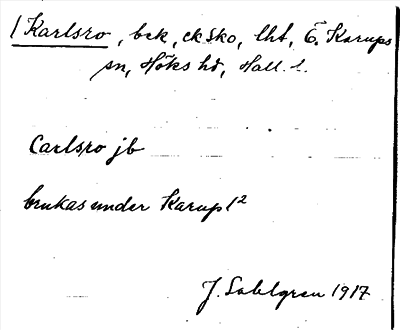 1 Karlsro, bck, ck Sko, lht, Ö. Karups
sn, Höks hd, Hall. l.
Carlsro jb
brukas under Karup 1²
J. Sahlgren 1917